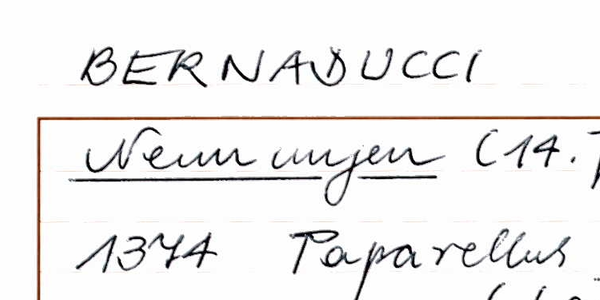 BERNADUCCI
Nennungen (14.
1374 Paparellus